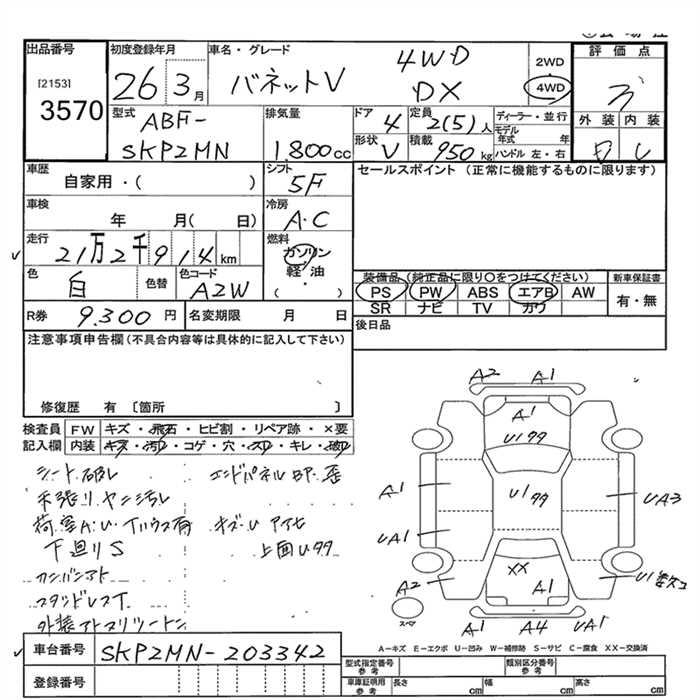 出品番号
[2153]
3570
初度登録年月
26 3月
車名・グレード
バネットV 4WD DX
2WD
4WD
評価点
外装 内装
型式
ABF-
SKP2MN
排気量
1,800cc
ドア
4
定員
2(5)人
ディーラー・並行
モデル年式 年
ハンドル 左・右
形状
V
積載
950kg
車歴
自家用・( )
シフト
5F
セールスポイント (正常に機能するものに限ります)
車検
年 月( 日)
冷房
A・C
走行
21万2千914km
燃料
ガソリン
軽・油
・( )
色
白
色替
色コード
A2W
装備品(純正品に限り〇をつけてください)
新車保証書
PS PW ABS エアB AW
SR ナビ TV カワ
有・無
R券
9,300円
名変期限 月 日
後日品
注意事項申告欄(不具合内容等は具体的に記入して下さい)
修復歴 有 〔箇所 〕
検査員記入欄
FW キズ・飛石・ヒビ割・リペア跡・×要
内装 キズ・汚レ・コゲ・穴・スレ・キレ・破レ
シート破レ エンドパネルBP歪
天張リヤニ汚レ
荷室A.U
キズU
下廻りS 上面U99
カンバンアト
スタッドレスT
A2 A1
A1
U199
A1
U199
UA3
UA1
A2
XX
A1
U1
スペア
A1 A4 UA1
A-キズ E-エクボ U-凹み W-補修跡 S-サビ C-腐食 XX-交換済
車台番号
SKP2MN-203342
登録番号
型式指定番号
参考
類別区分番号
参考
車庫証明用
参考
長さ cm
幅 cm
高さ cm